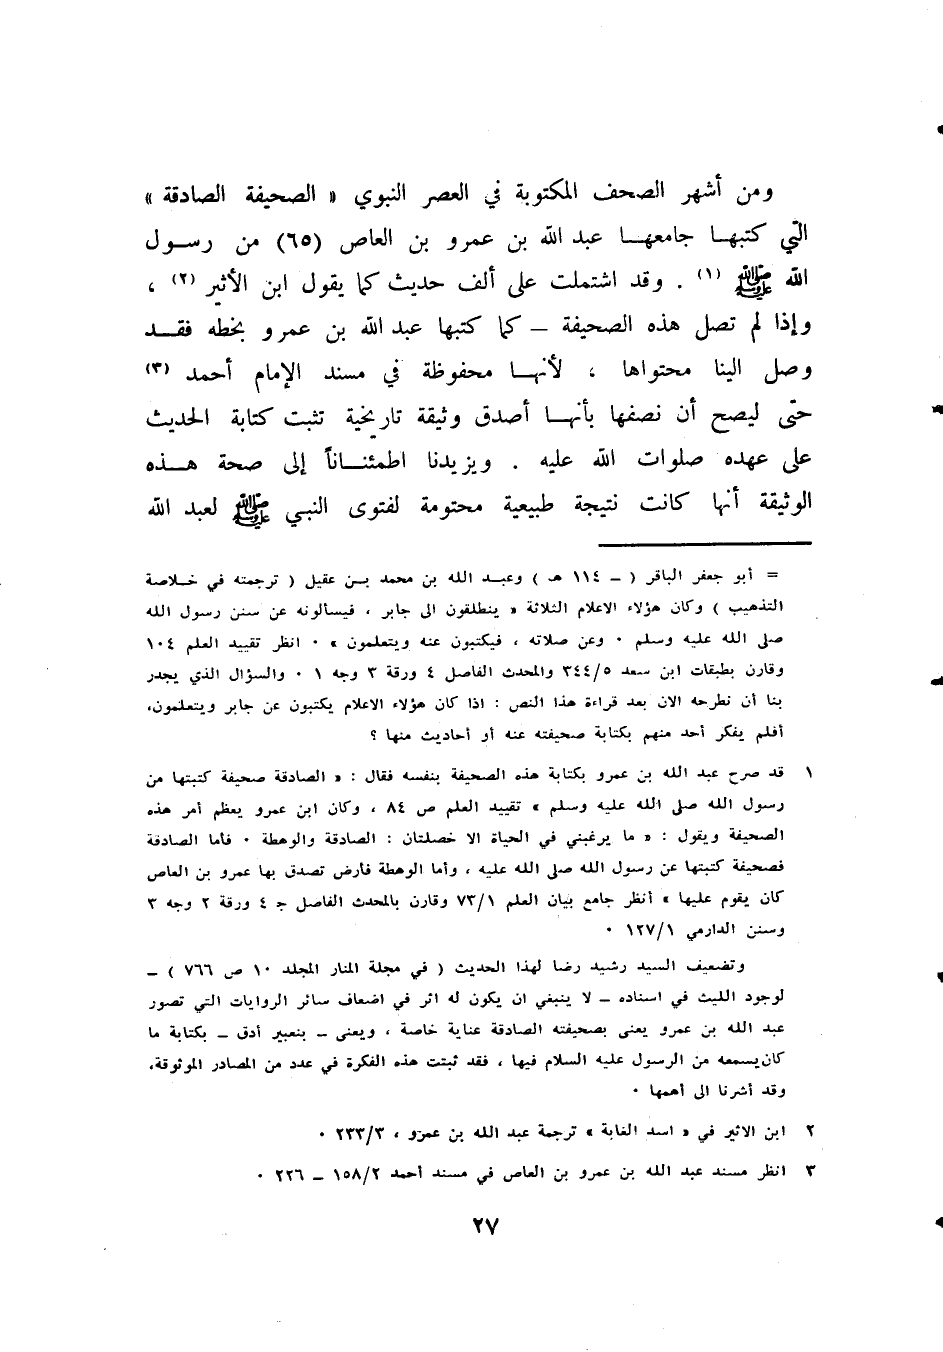 ومن أشهر الصحف المكتوبة في العصر النبوي « الصحيفة الصادقة »
التي كتبهـا جامعهـا عبد الله بن عمرو بن العاص (٦٥) من رسـول
الله ﷺ (١) . وقد اشتملت على ألف حديث كما يقول ابن الأثير (٢) ،
وإذا لم تصل هذه الصحيفة – كما كتبها عبد الله بن عمرو بخطه فقــد
وصل الينا محتواها ، لأنهـا محفوظة في مسند الإمام أحمد (٣)
حتّى ليصح أن نصفها بأنهـا أصدق وثيقة تاريخية تثبت كتابة الحديث
على عهده صلوات الله عليه . ويزيدنا اطمئنـاناً إلى صحة هـذه
الوثيقة أنها كانت نتيجة طبيعية محتومة لفتوى النبي ﷺ لعبد الله
= أبو جعفر الباقر ( – ١١٤ هـ ) وعبـد الله بن محمد بـن عقيل ( ترجمته في خـلاصة
التذهيب ) وكان هؤلاء الاعلام الثلاثة « ينطلقون الى جابر ، فيسألونه عن سنن رسول الله
صلى الله عليه وسلم ٠ وعن صلاته ، فيكتبون عنه ويتعلمون » ٠ انظر تقييد العلم ١٠٤
وقارن بطبقات ابن سعد ٣٤٤/٥ والمحدث الفاصل ٤ ورقة ٣ وجه ١ ٠ والسؤال الذي يجدر
بنا أن نطرحه الان بعد قراءة هذا النص : اذا كان هؤلاء الاعلام يكتبون عن جابر ويتعلمون،
أفلم يفكر أحد منهم بكتابة صحيفته عنه أو أحاديث منها ؟
١ قد صرح عبد الله بن عمرو بكتابة هذه الصحيفة بنفسه فقال : « الصادقة صحيفة كتبتها من
رسول الله صلى الله عليه وسلم » تقييد العلم ص ٨٤ ، وكان ابن عمرو يعظم أمر هذه
الصحيفة ويقول : « ما يرغبني في الحياة الا خصلتان : الصادقة والوهطة ٠ فأما الصادقة
فصحيفة كتبتها عن رسول الله صلى الله عليه ، وأما الوهطة فأرض تصدق بها عمرو بن العاص
كان يقوم عليها » أنظر جامع بيان العلم ٧٣/١ وقارن بالمحدث الفاصل جـ ٤ ورقة ٢ وجه ٣
وسنن الدارمي ١٢٧/١ ٠
وتضعيف السيد رشيد رضا لهذا الحديث ( في مجلة المنار المجلد ١٠ ص ٧٦٦ ) –
لوجود الليث في اسناده – لا ينبغي ان يكون له اثر في اضعاف سائر الروايات التي تصور
عبد الله بن عمرو يعنى بصحيفته الصادقة عناية خاصة ، ويعنى – بتعبير أدق – بكتابة ما
كان يسمعه من الرسول عليه السلام فيها ، فقد ثبتت هذه الفكرة في عدد من المصادر الموثوقة،
وقد أشرنا الى أهمها ٠
٢ ابن الاثير في « اسد الغابة » ترجمة عبد الله بن عمرو ، ٢٣٣/٣ ٠
٣ انظر مسند عبد الله بن عمرو بن العاص في مسند أحمد ١٥٨/٢ – ٢٢٦ ٠
٢٧